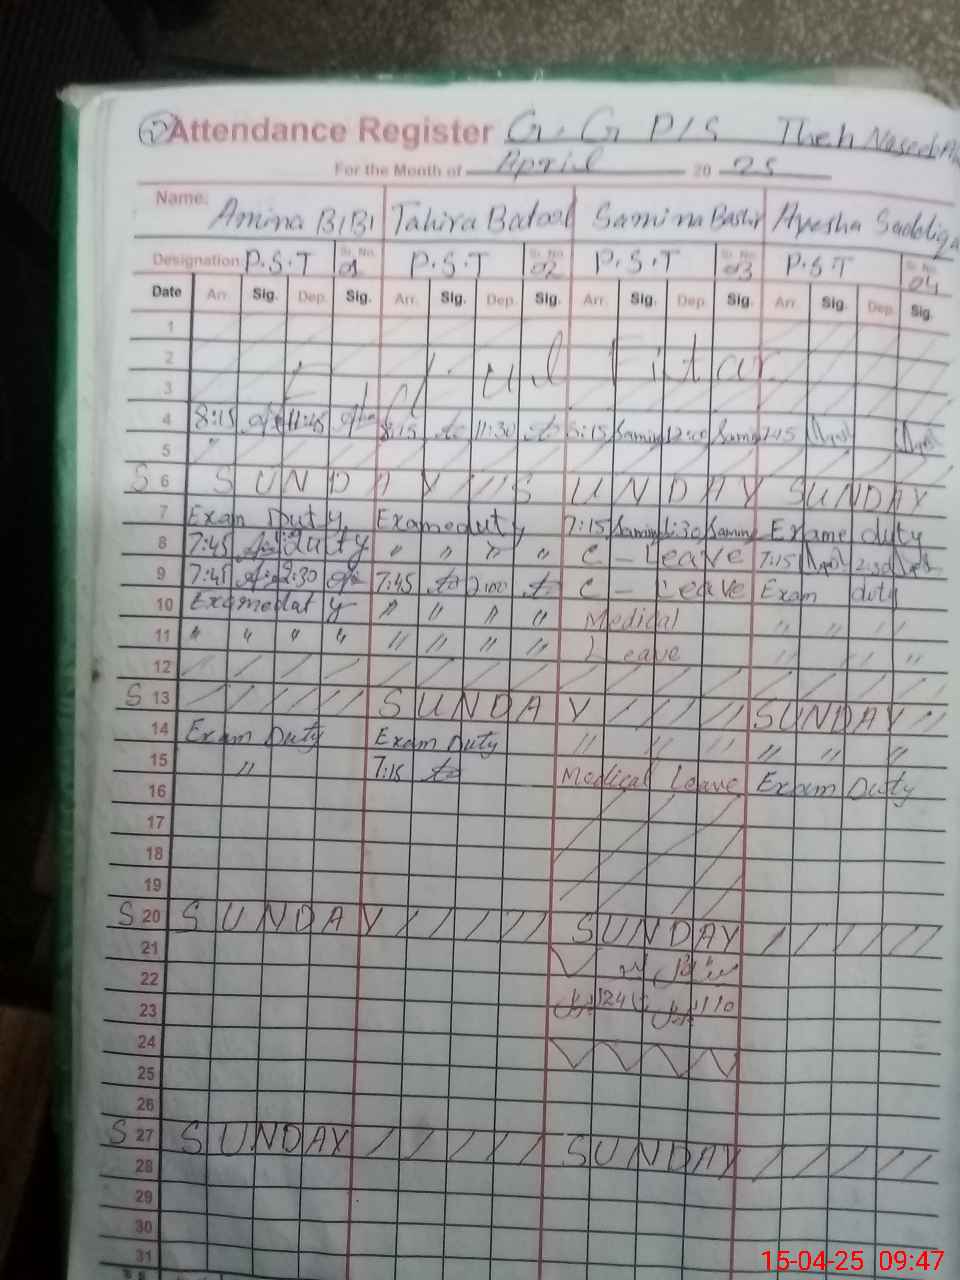 Attendance Register G.G P/S Theh Naseeb
For the Month of April 2025
Name: Amina BiBi Tahira Batool Samina Bashir Ayesha Saddiqa
Designation: P.S.T Sr. No. 01 P.S.T Sr. No. 02 P.S.T Sr. No. 03 P.S.T Sr. No. 04
Date Arr. Sig. Dep. Sig. Arr. Sig. Dep. Sig. Arr. Sig. Dep. Sig. Arr. Sig. Dep. Sig.
1
2 Eid ul Fitar
3
4 8:15 11:45 8:15 11:30 8:15 Samina 12:00 Samina 7:15
5
S 6 SUNDAY SUNDAY SUNDAY
7 Exam Duty Exame duty 7:15 Samina 1:30 Samina Exame duty
8 7:45 duty " " " " C-Leave 7:15 2:30
9 7:45 2:30 7:45 2:00 C-Leave Exam duty
10 Exame duty " " " " Medical " " "
11 " " " " " " " " Leave " " "
12
S 13 SUNDAY SUNDAY
14 Exam Duty Exam Duty " " " " " "
15 " 7:15 Medical Leave Exam Duty
16
17
18
19
S 20 SUNDAY SUNDAY
21
22
23
24
25
26
S 27 SUNDAY SUNDAY
28
29
30
31
15-04-25 09:47